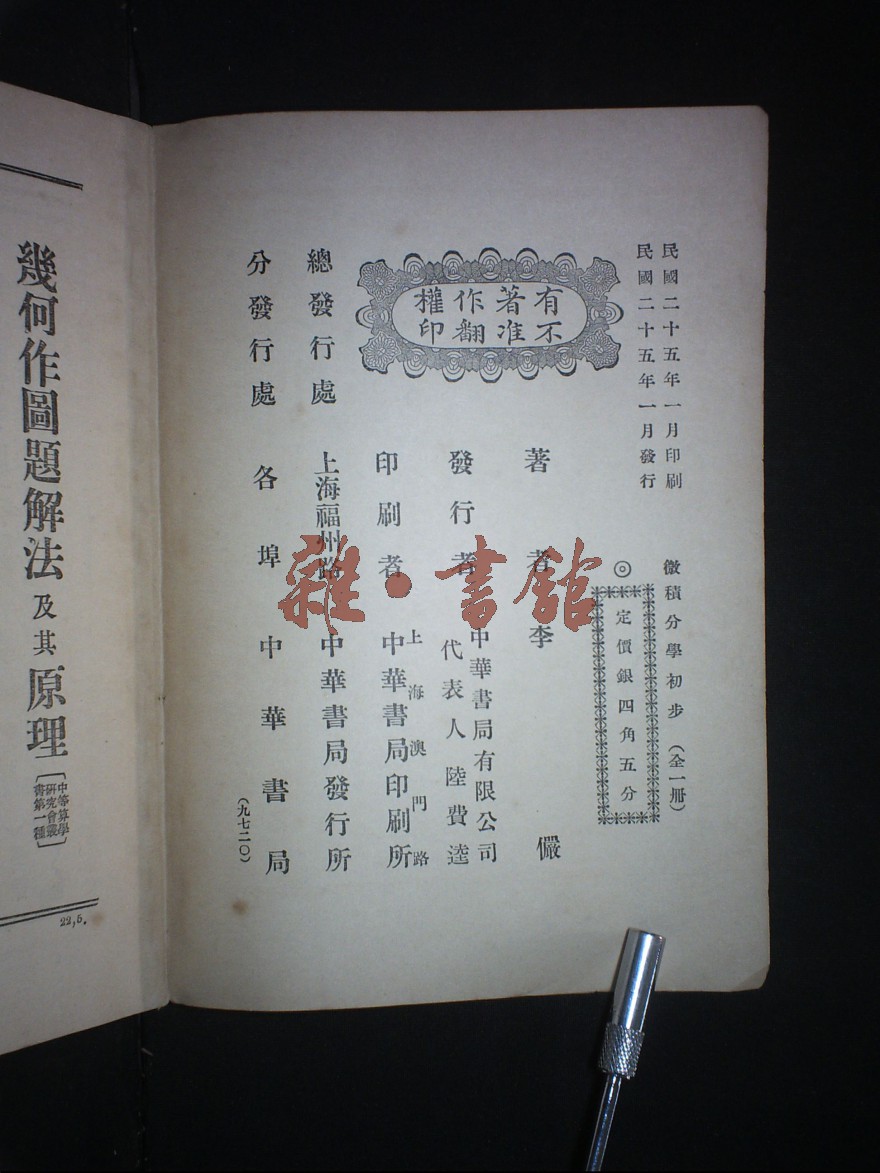 民國二十五年一月印刷
民國二十五年一月發行
微積分學初步（全一冊）
◎
定價銀四角五分
有著作權
不准翻印
著者 李儼
發行者 中華書局有限公司
代表人陸費逵
印刷者 上海澳門路
中華書局印刷所
總發行處 上海福州路 中華書局發行所
分發行處 各埠 中華書局
（九七二〇）
雜·書館
幾何作圖題解法及其原理
［中等算學
研究會叢
書第一種］
22,5.